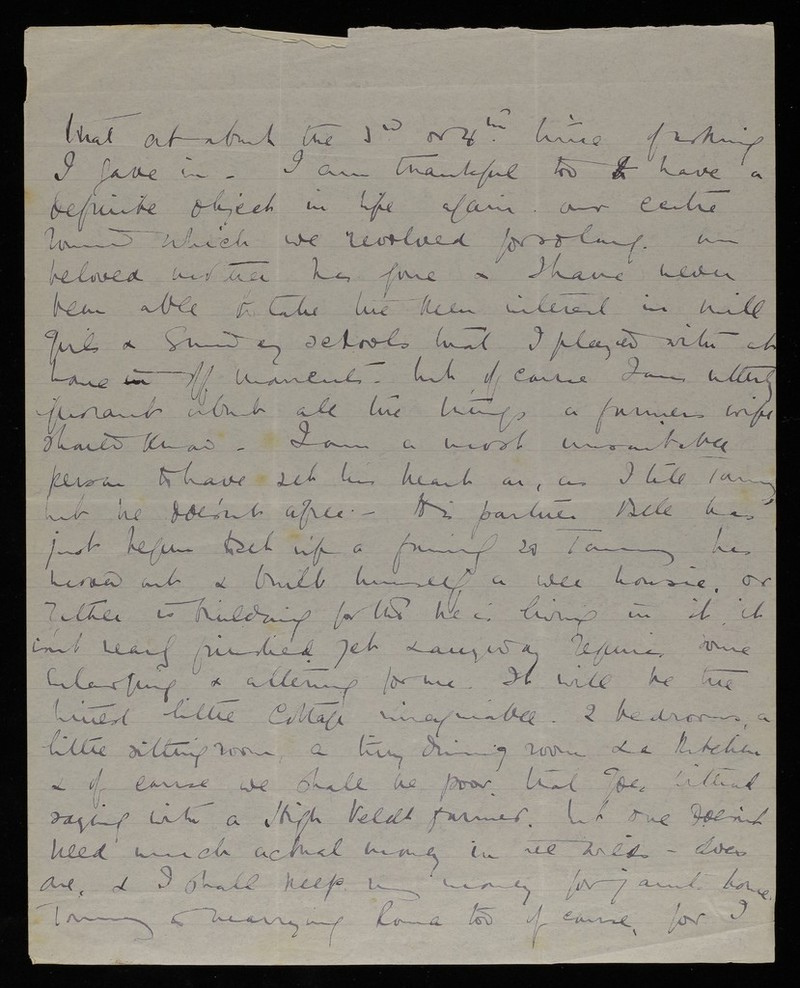 that at about the 3rd or 4th time of asking
I gave in - I am thankful too to have a
definite object in life again. our centre
round which we revolved for so long. our
beloved mother has gone & I have never
been able to take the keen interest in mill
girls & Sunday schools that I played with at
home in off moments - but of course I am utterly
ignorant about all the things a farmers wife
should know - I am a most unsuitable
person to have set his heart on, as I tell Tommy
but he doesn't agree - His partner Dele has
just begun to set up a so Tommy has
moved out & built himself a wee housie, or
rather is building for tho he is living in it, it
isn't nearly finished yet & anyway requires some
enlarging & altering for me. It will be the
tiniest little Cottage imaginable. 2 bedrooms, a
little sitting room, a tiny dining room & a kitchen
& of course we shall be poor. that goes without
saying with a High Veldt farmer. but one doesn't
need much actual money in the wilds - does
one, & I shall keep my money for jaunts home.
Tommy is marrying Roma too of course, for I